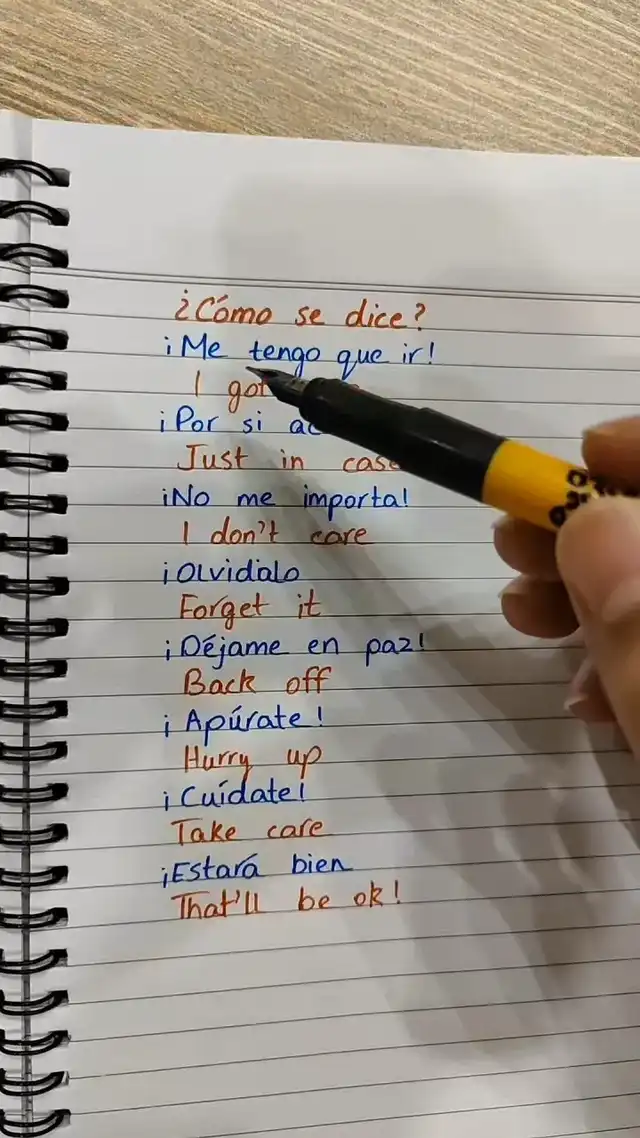 ¿Cómo se dice?
¡Me tengo que ir!
I got
¡Por si
Just in case
¡No me importa!
I don't care
¡Olvidalo
Forget it
¡Déjame en paz!
Back off
¡Apúrate!
Hurry up
¡Cuídate!
Take care
¡Estará bien
That'll be ok!